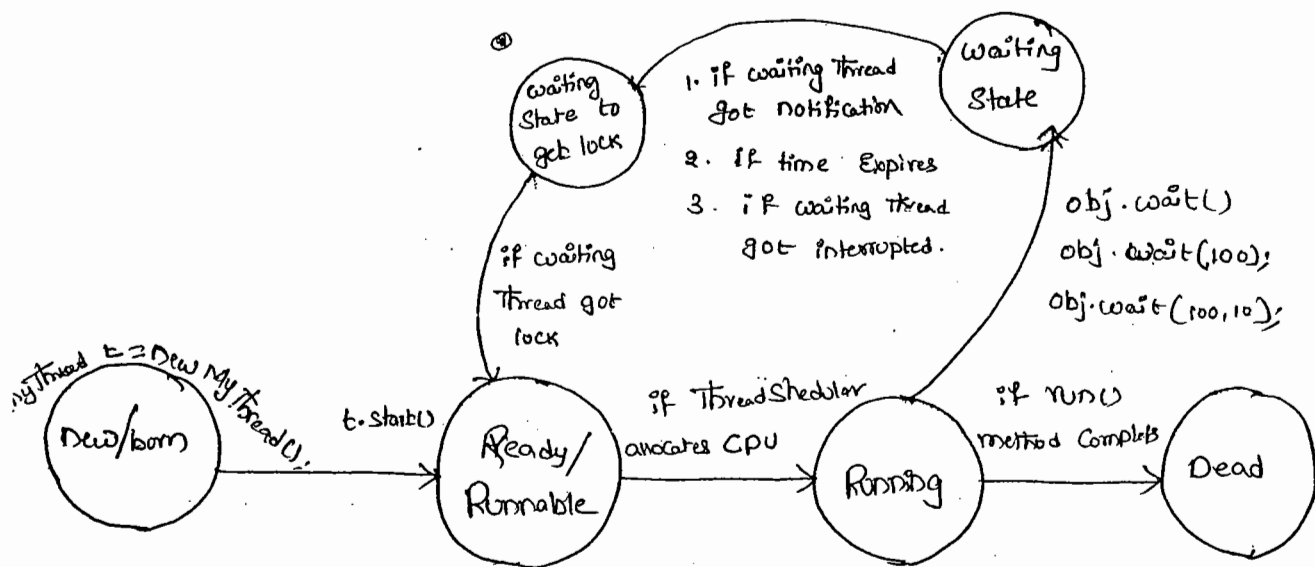 waiting
State to
get lock
1. if waiting Thread
got notification
2. If time Expires
3. if waiting Thread
got interrupted.
waiting
State
obj.wait()
obj.wait(100);
obj.wait(100,10);
if waiting
Thread got
lock
MyThread t=new MyThread();
New/born
t.start()
Ready/
Runnable
if ThreadShedular
allocates CPU
Running
if run()
method Complets
Dead